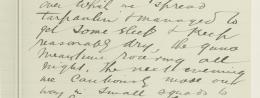 over which we spread
tarpaulin & managed to
get some sleep & keep
reasonably dry, the guns
meantime roaring all
night, the next evening
we cautiously made our
way in small squads to